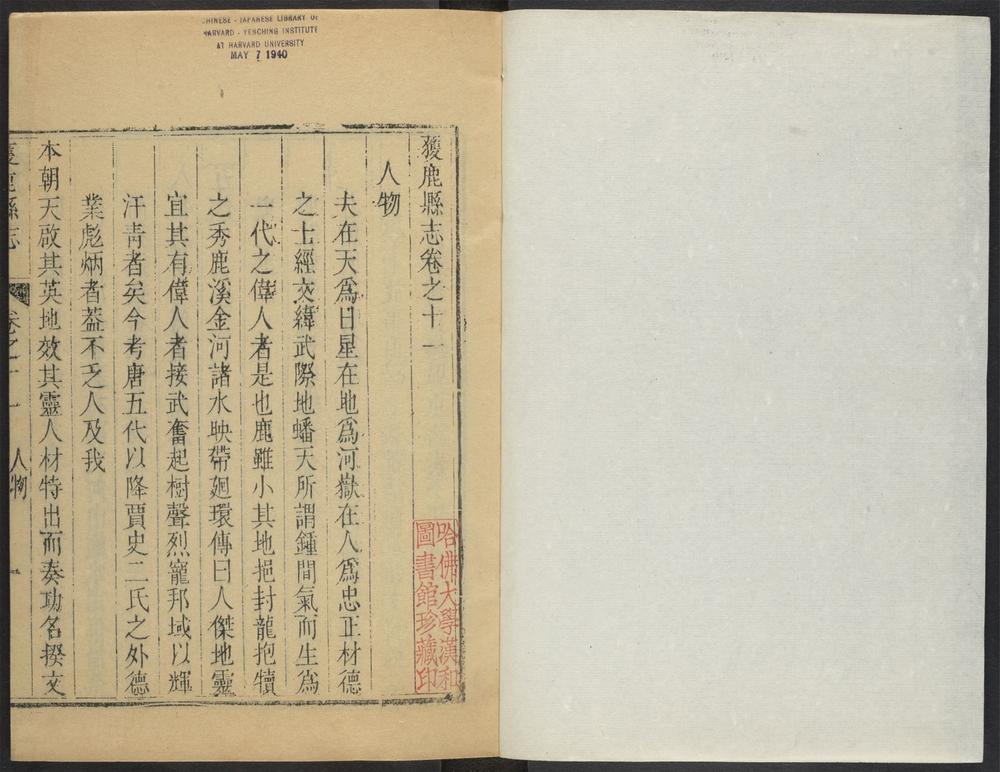 CHINESE - JAPANESE LIBRARY OF
HARVARD - YENCHING INSTITUTE
AT HARVARD UNIVERSITY
MAY 7 1940
獲鹿縣志卷之十一
人物
夫在天爲日星在地爲河嶽在人爲忠正材德
之士經文緯武際地蟠天所謂鍾間氣而生爲
一代之偉人者是也鹿雖小其地挹封龍抱犢
之秀鹿溪金河諸水映帶廻環傳曰人傑地靈
宜其有偉人者接武奮起樹聲烈寵邦域以輝
汗青者矣今考唐五代以降賈史二氏之外德
業彪炳者葢不乏人及我
本朝天啟其英地效其靈人材特出而奏功名揆文
鹿縣志
卷之十一
人物
一
哈佛大學漢和
圖書館珍藏印